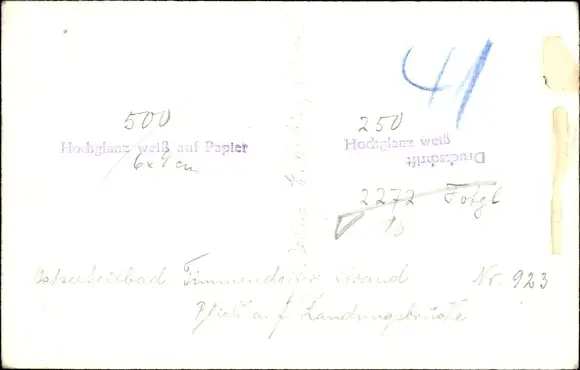 41
500
Hochglanz weiß auf Papier
6x9 cm
250
Hochglanz weiß
Druckschrift
2272 Fotogl
Ostseeheilbad Timmendorfer Strand Nr. 923
Blick auf Landungsbrücke